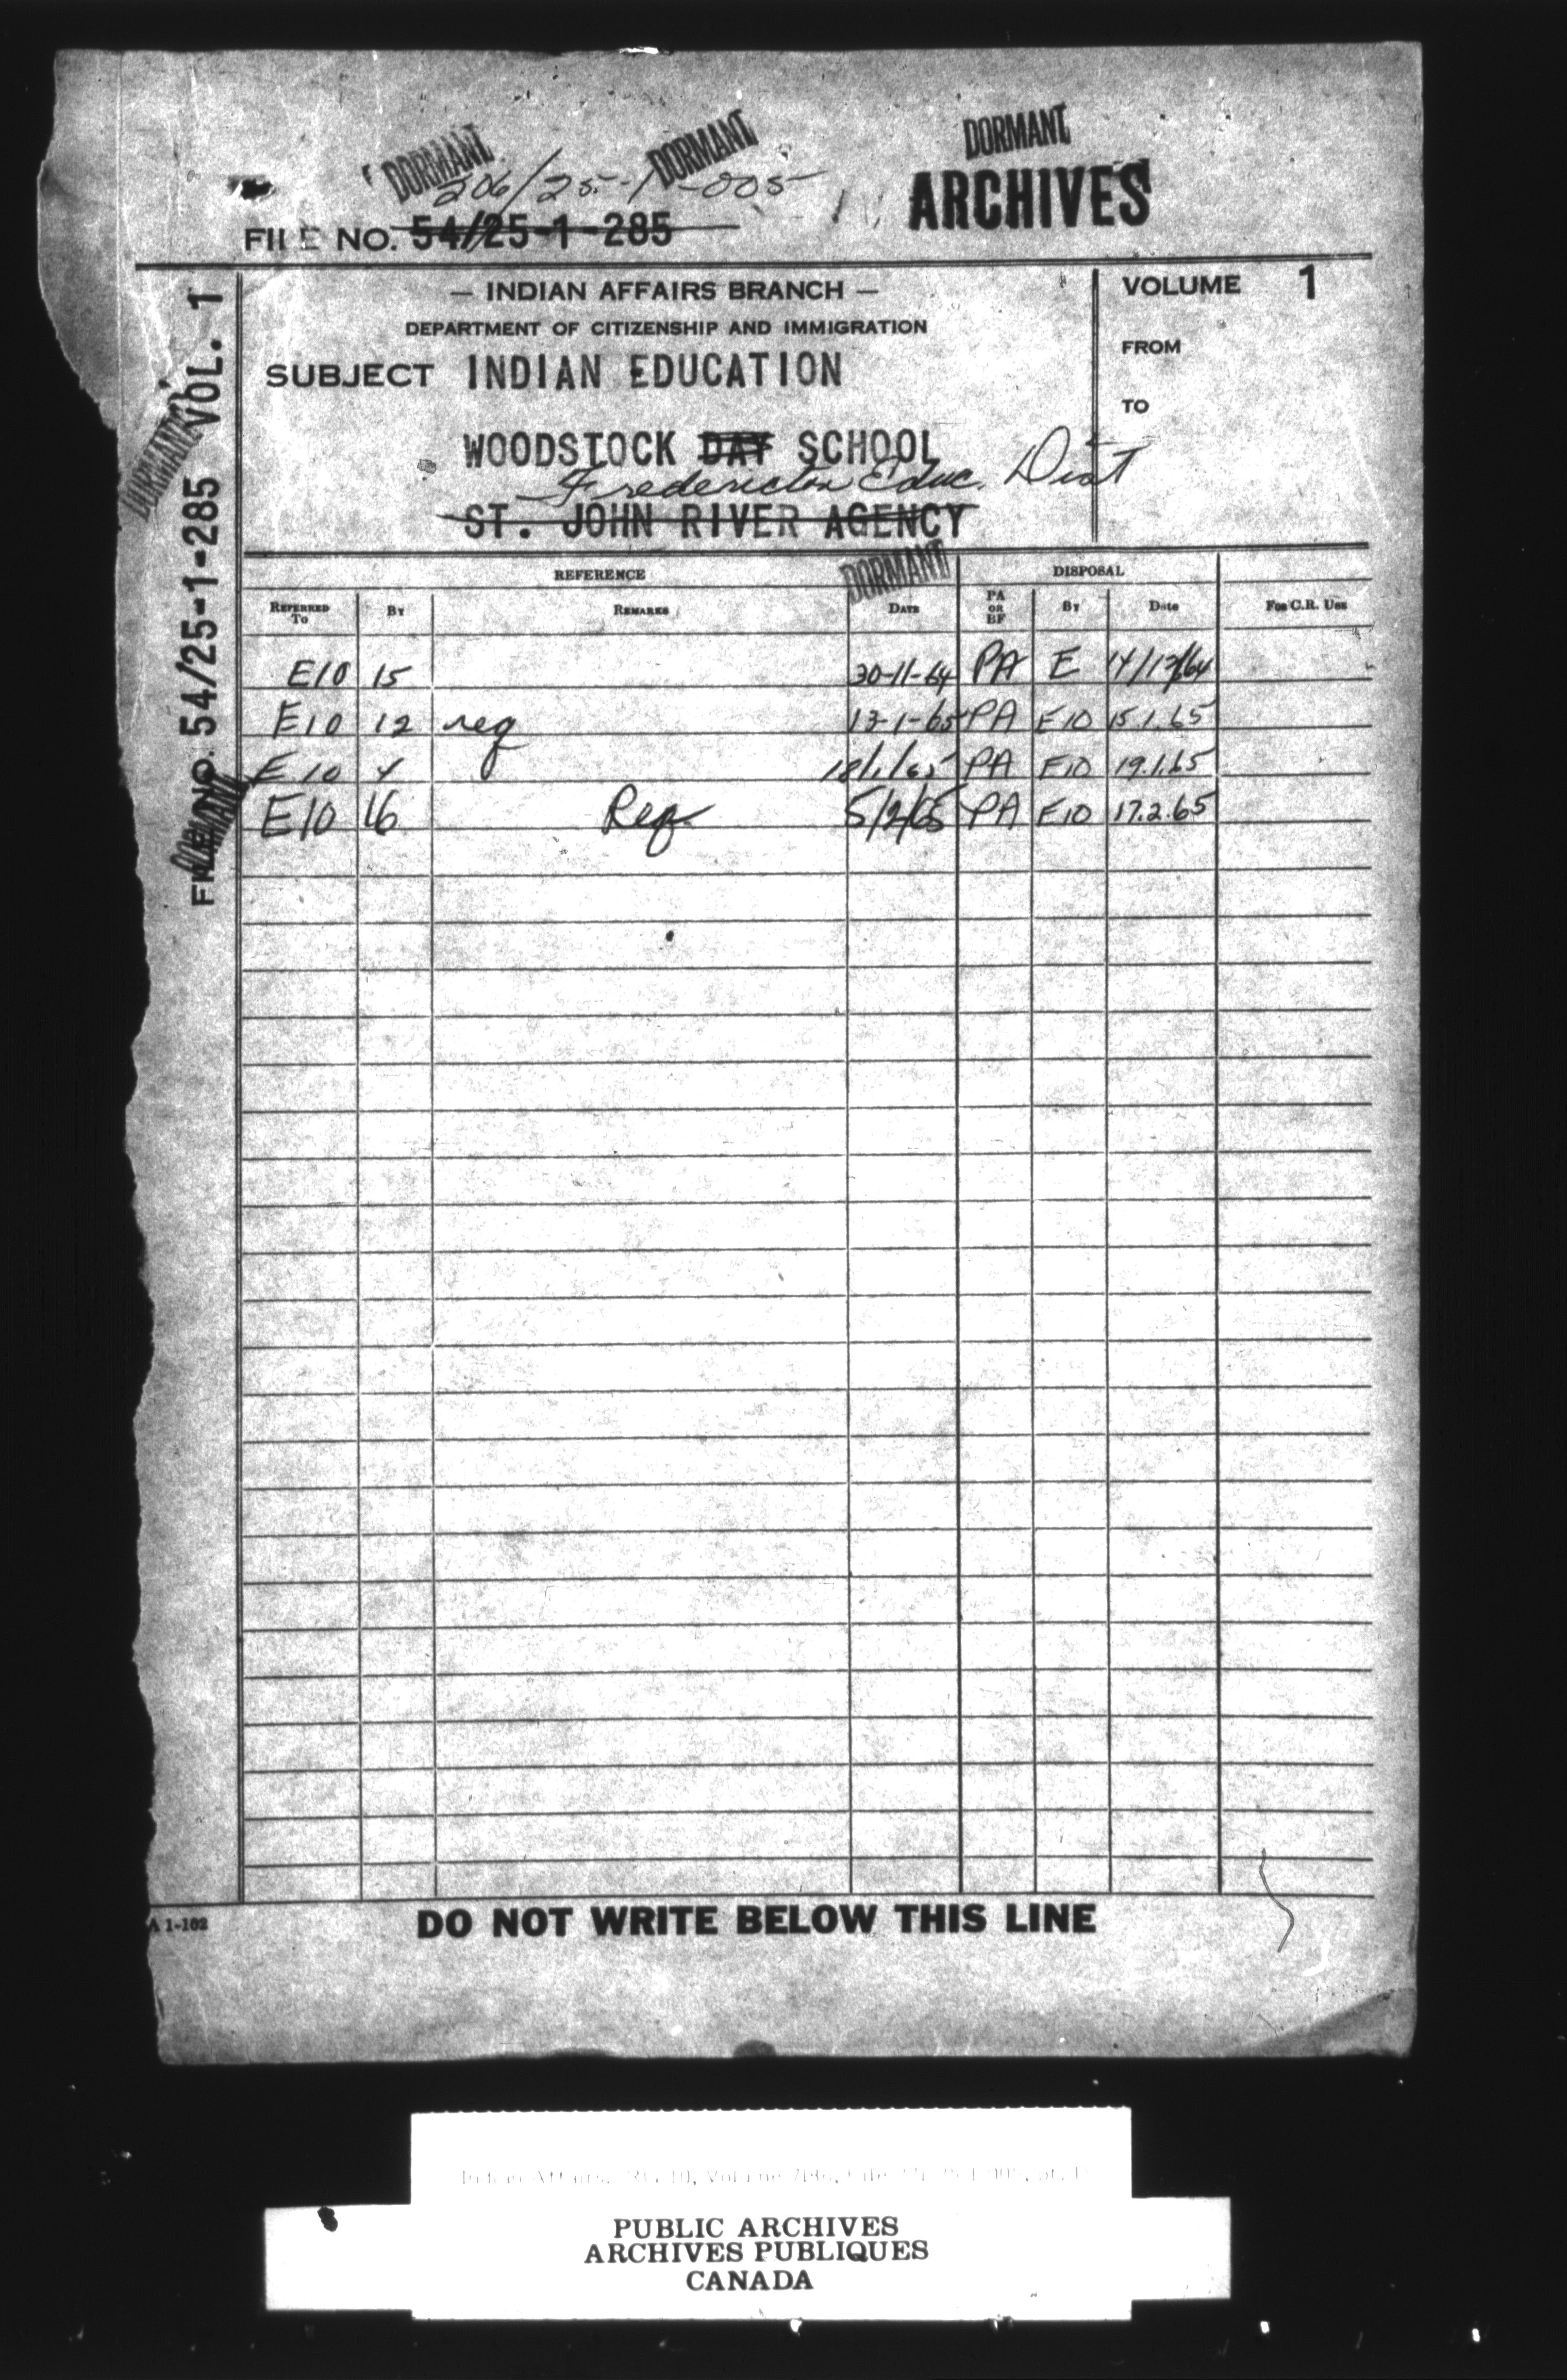 DORMANT DORMANT DORMANT
206/25-1-005
ARCHIVES
FILE NO. 54/25-1-285
— INDIAN AFFAIRS BRANCH —
DEPARTMENT OF CITIZENSHIP AND IMMIGRATION
SUBJECT INDIAN EDUCATION
WOODSTOCK DAY SCHOOL
Fredericton Educ. Dist
ST. JOHN RIVER AGENCY
VOLUME 1
FROM
TO
FILE NO. 54/25-1-285 VOL. 1
DORMANT
DORMANT
DORMANT
REFERENCE DISPOSAL
REFERRED TO BY REMARKS DATE PA OR BF BY Date For C.R. Use
E10 15 30-11-64 PA E 14/12/64
E10 12 req 13-1-65 PA E10 15.1.65
E10 4 18/1/65 PA E10 19.1.65
E10 16 Req 5/2/65 PA E10 17.2.65
A 1-102
DO NOT WRITE BELOW THIS LINE
Indian Affairs, RG 10, Volume
PUBLIC ARCHIVES
ARCHIVES PUBLIQUES
CANADA